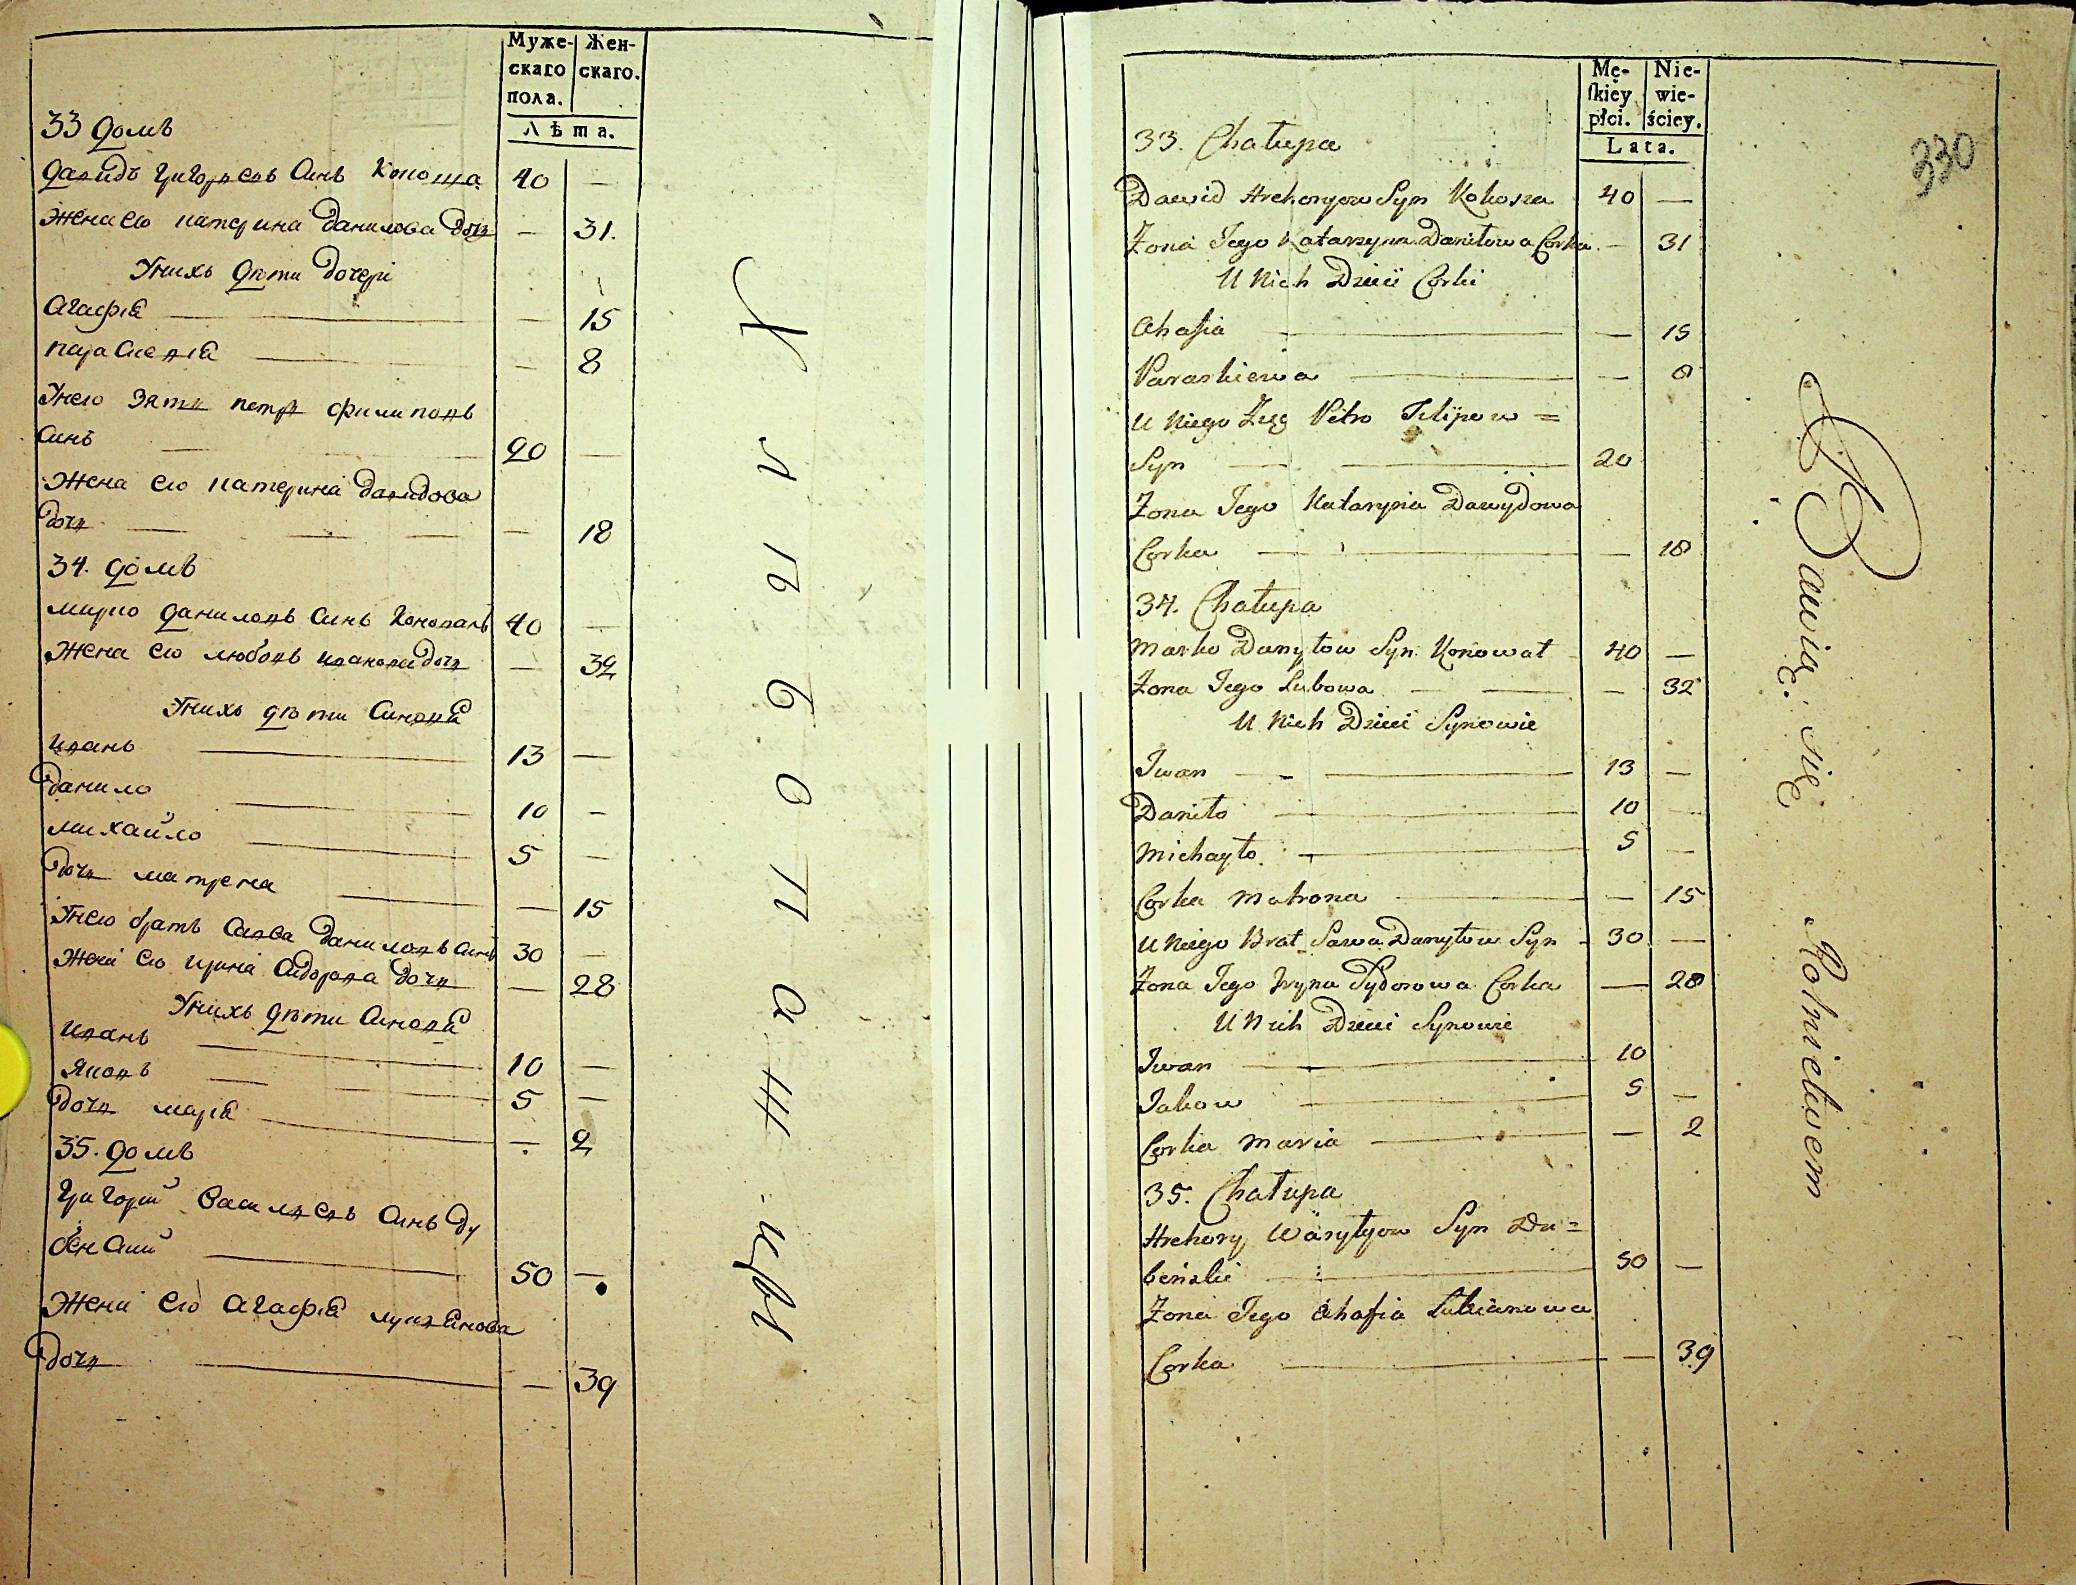 Муже-
скаго
пола.
Жен-
скаго.
Лѣта.
33 домъ
Давидъ Григорьевъ Синъ Кокоша 40 —
Жена его катерина Данилова дочь — 31.
Унихъ дѣти дочери
Агафія — 15
параскевія — 8
Унего зять петръ филиповъ
Синъ 20 —
Жена его катерина давидова
дочь — 18
34. домъ
марко даниловъ Синъ Коновалъ 40 —
Жена его любовь иванова дочь — 32
Унихъ дѣти Синовя
иванъ 13 —
данило 10 —
михайло 5 —
дочь матрена — 15
Унего братъ Сава даниловъ Синъ 30 —
Жена его ирина Сидорова дочь — 28
Унихъ дѣти Синовя
иванъ 10 —
Яковъ 5 —
дочь марія — 2
35. домъ
Григорій Василевъ Синъ ду
бенский 50 —
Жена его Агафія лукянова
дочь — 39
Хлѣбопаш:цы
Mę-
skiey
płci.
Nie-
wie-
ściey.
Lata.
330
33. Chałupa
Dawid Hrehoryow Syn Kokosza 40 —
Żona Jego Katarzyna Daniłowa Corka — 31
U Nich Dzieci Corki
Ahafia — 15
Paraskiewia — 8
U Niego Zięć Petro Filipow =
Syn 20
Żona Jego Kataryna Dawydowa
Corka — 18
34. Chałupa
Marko Danyłow Syn Konował 40 —
Żona Jego Lubowa — 32
U Nich Dzieci Synowie
Iwan 13 —
Daniło 10 —
Michayło 5 —
Corka Matrona — 15
U Niego Brat Sawa Danyłow Syn 30 —
Żona Jego Iryna Sydorowa Corka — 28
U Nich Dzieci Synowie
Iwan 10
Jakow 5 —
Corka Maria — 2
35. Chałupa
Hrehory Wasylyow Syn Du=
beński 50 —
Żona Jego Ahafia Lukianowa
Corka — 39
Bawią się Rolnictwem